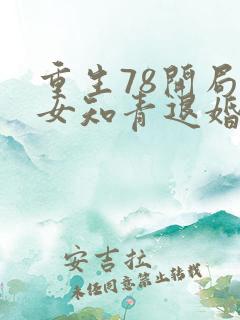 重生78开局
女知青退婚
安吉拉
未经同意禁止转载